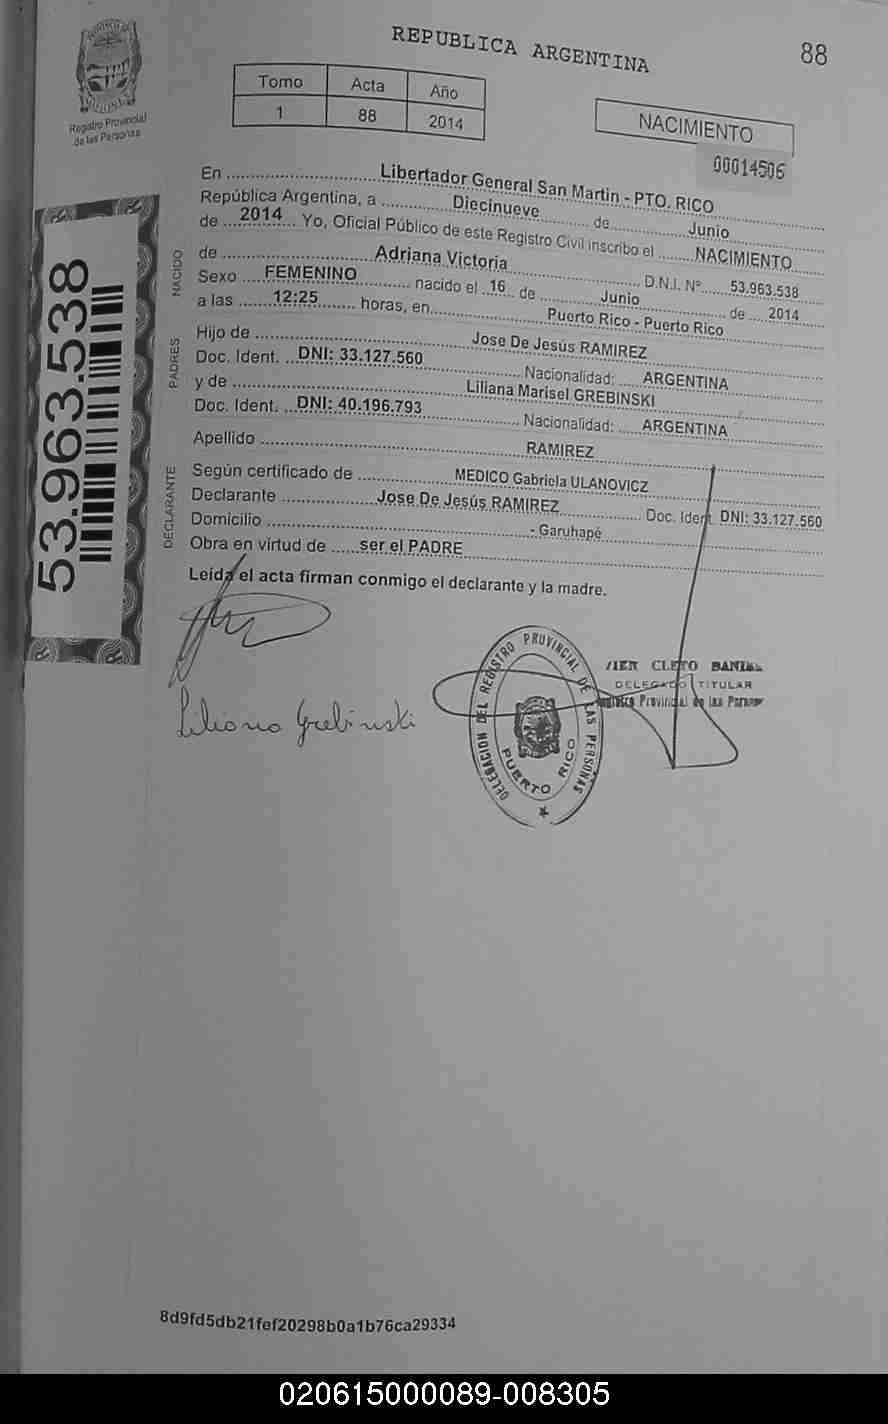 REPUBLICA ARGENTINA
88
Registro Provincial
de las Personas
Tomo Acta Año
1 88 2014
NACIMIENTO
00014506
En ........ Libertador General San Martin - PTO. RICO
República Argentina, a ........ Diecinueve ........ de ........ Junio
de ... 2014 ... Yo, Oficial Público de este Registro Civil inscribo el ........ NACIMIENTO
NACIDO
de ........ Adriana Victoria ........ D.N.I. Nº ..... 53.963.538
Sexo .... FEMENINO ........ nacido el .. 16 .. de ........ Junio ........ de .... 2014
a las ...... 12:25 ...... horas, en ........ Puerto Rico - Puerto Rico
PADRES
Hijo de ........ Jose De Jesús RAMIREZ
Doc. Ident. .. DNI: 33.127.560 ........ Nacionalidad: .... ARGENTINA
y de ........ Liliana Marisel GREBINSKI
Doc. Ident. .. DNI: 40.196.793 ........ Nacionalidad: .... ARGENTINA
Apellido ........ RAMIREZ
DECLARANTE
Según certificado de ........ MEDICO Gabriela ULANOVICZ
Declarante ........ Jose De Jesús RAMIREZ ........ Doc. Ident. DNI: 33.127.560
Domicilio ........ - Garuhapé
Obra en virtud de ..... ser el PADRE
Leída el acta firman conmigo el declarante y la madre.
53.963.538
Liliana Grebinski
DELEGACION DEL REGISTRO PROVINCIAL DE LAS PERSONAS
PUERTO RICO
CLETO
DELEGADO TITULAR
Provincial de las
8d9fd5db21fef20298b0a1b76ca29334
020615000089-008305